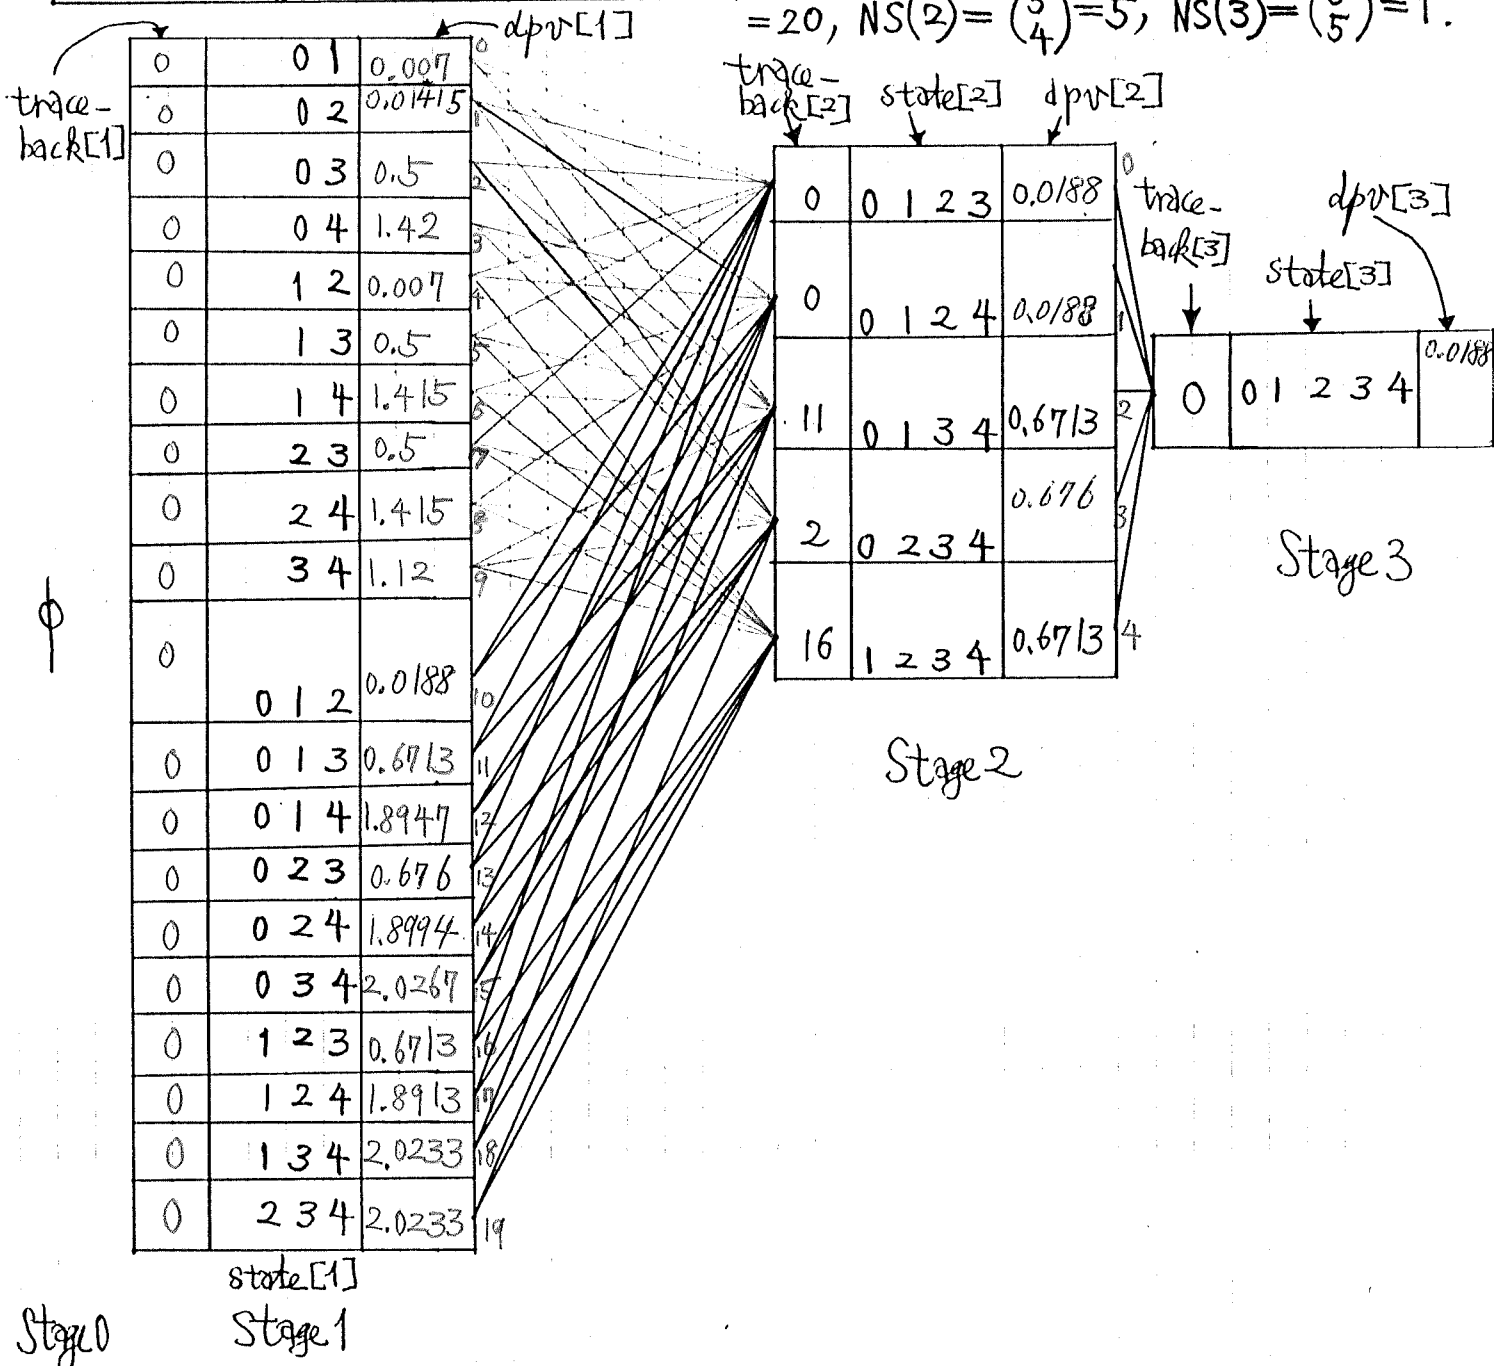 =20, NS(2)=(5 4)=5, NS(3)=(5 5)=1.
trace-back[1]
dpv[1]
0 0 1 0.007 0
0 0 2 0.01415 1
0 0 3 0.5 2
0 0 4 1.42 3
0 1 2 0.007 4
0 1 3 0.5 5
0 1 4 1.415 6
0 2 3 0.5 7
0 2 4 1.415 8
0 3 4 1.12 9
0 0 1 2 0.0188 10
0 0 1 3 0.6713 11
0 0 1 4 1.8947 12
0 0 2 3 0.676 13
0 0 2 4 1.8994 14
0 0 3 4 2.0267 15
0 1 2 3 0.6713 16
0 1 2 4 1.8913 17
0 1 3 4 2.0233 18
0 2 3 4 2.0233 19
state[1]
ϕ
Stage 0
Stage 1
trace-
back[2] state[2] dpv[2]
0 0 1 2 3 0.0188 0
0 0 1 2 4 0.0188 1
11 0 1 3 4 0.6713 2
2 0 2 3 4 0.676 3
16 1 2 3 4 0.6713 4
Stage 2
trace-
back[3]
state[3]
dpv[3]
0 0 1 2 3 4 0.0188
Stage 3